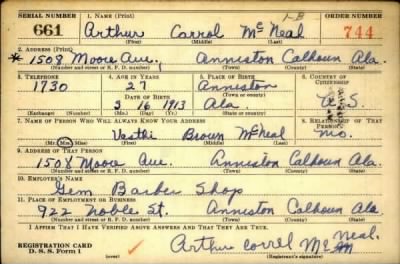 SERIAL NUMBER 1. NAME (Print) ORDER NUMBER
661 Arthur Carrol McNeal 744
(First) (Middle) (Last)
2. ADDRESS (Print)
* 1508 Moore Ave., Anniston Calhoun Ala.
(Number and street or R. F. D. number) (Town) (County) (State)
3. TELEPHONE 4. AGE IN YEARS 5. PLACE OF BIRTH 6. COUNTRY OF CITIZENSHIP
1730 27 Anniston
DATE OF BIRTH (Town or county)
3 16 1913 Ala. U.S.
(Exchange) (Number) (Mo.) (Day) (Yr.) (State or country)
7. NAME OF PERSON WHO WILL ALWAYS KNOW YOUR ADDRESS 8. RELATIONSHIP OF THAT PERSON
Vesthi Brown McNeal Mo.
(Mr., Mrs., Miss) (First) (Middle) (Last)
9. ADDRESS OF THAT PERSON
1508 Moore Ave. Anniston Calhoun Ala.
(Number and street or R. F. D. number) (Town) (County) (State)
10. EMPLOYER'S NAME
Gem Barber Shop
11. PLACE OF EMPLOYMENT OR BUSINESS
922 Noble St. Anniston Calhoun Ala.
(Number and street or R. F. D. number) (Town) (County) (State)
I AFFIRM THAT I HAVE VERIFIED ABOVE ANSWERS AND THAT THEY ARE TRUE.
REGISTRATION CARD
D. S. S. Form 1 (over) Arthur Correl McNeal.
(Registrant's signature)